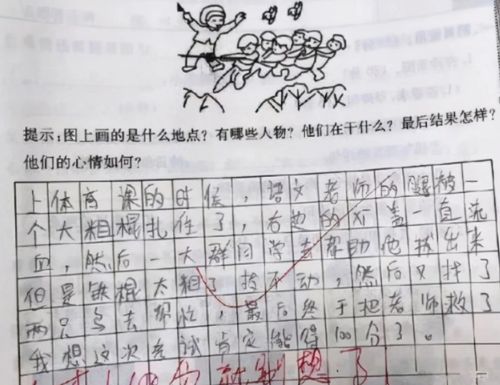 提示:图上画的是什么地点？有哪些人物？他们在干什么？最后结果怎样？
他们的心情如何？
上体育课的时候，语文老师的腿被一
个大粗棍扎住了，右边的膝盖一直流
血，然后一大群同学去帮助他拔出来
但是铁棍太粗了拔不动，然后又找了
两只鸟去帮忙，最后终于把老师救了
我想这次考试肯定能得100分了。
想了